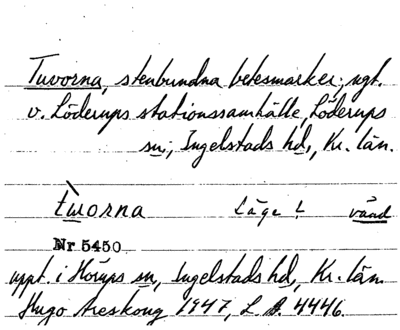 Tuvorna, stenbundna betesmarker, sgt.
v. Löderups stationssamhälle, Löderups
sn, Ingelstads hd, Kr. län.
tùworna Läge! vänd
Nr 5450
uppt. i Hörups sn, Ingelstads hd, Kr. län
Hugo Areskoug 1947, L. B. 4446.